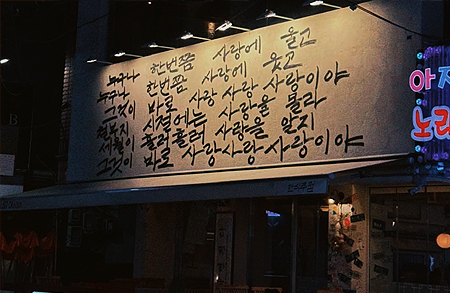 누구나 한번쯤 사랑에 울고
누구나 한번쯤 사랑에 웃고
그것이 바로 사랑 사랑 사랑이야
철부지 시절에는 사랑을 몰라
세월이 흘러흘러 사랑을 알지
그것이 바로 사랑사랑사랑이야
노래